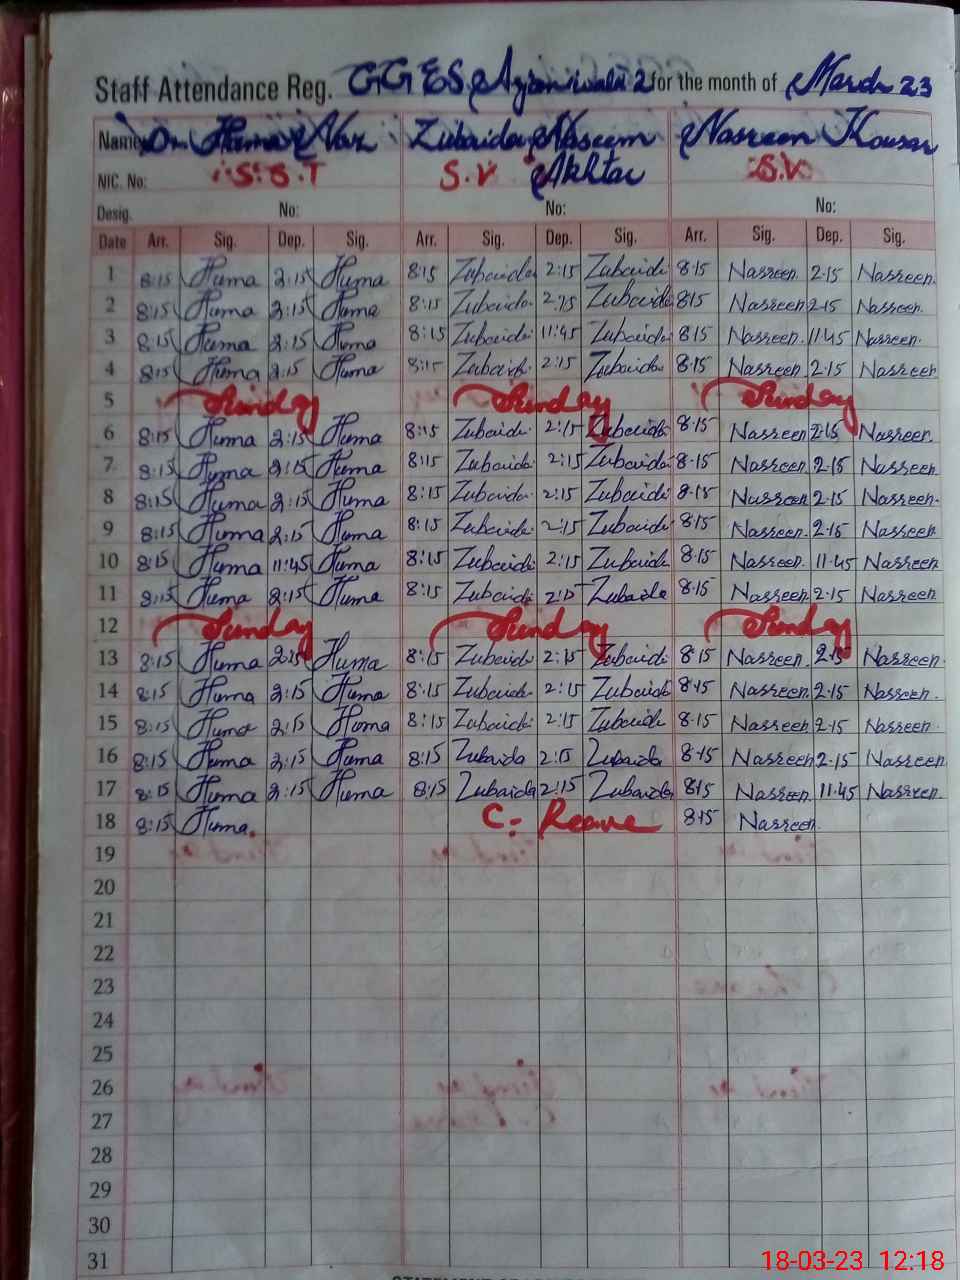 Staff Attendance Reg. GGES Ajjanwala 2 for the month of March 23
Name Dr. Huma Naz Zubaida Naseem Nasreen Kousar
NIC. No: S.S.T S.V Akhtar S.V
Desig. No: No: No:
Date Arr. Sig. Dep. Sig. Arr. Sig. Dep. Sig. Arr. Sig. Dep. Sig.
1 8:15 Huma 2:15 Huma 8:15 Zubaida 2:15 Zubaida 8:15 Nasreen 2:15 Nasreen
2 8:15 Huma 2:15 Huma 8:15 Zubaida 2:15 Zubaida 8:15 Nasreen 2:15 Nasreen
3 8:15 Huma 2:15 Huma 8:15 Zubaida 11:45 Zubaida 8:15 Nasreen 11:45 Nasreen
4 8:15 Huma 2:15 Huma 8:15 Zubaida 2:15 Zubaida 8:15 Nasreen 2:15 Nasreen
5 Sunday Sunday Sunday
6 8:15 Huma 2:15 Huma 8:15 Zubaida 2:15 Zubaida 8:15 Nasreen 2:15 Nasreen
7 8:15 Huma 2:15 Huma 8:15 Zubaida 2:15 Zubaida 8:15 Nasreen 2:15 Nasreen
8 8:15 Huma 2:15 Huma 8:15 Zubaida 2:15 Zubaida 8:15 Nasreen 2:15 Nasreen
9 8:15 Huma 2:15 Huma 8:15 Zubaida 2:15 Zubaida 8:15 Nasreen 2:15 Nasreen
10 8:15 Huma 11:45 Huma 8:15 Zubaida 2:15 Zubaida 8:15 Nasreen 11:45 Nasreen
11 8:15 Huma 2:15 Huma 8:15 Zubaida 2:15 Zubaida 8:15 Nasreen 2:15 Nasreen
12 Sunday Sunday Sunday
13 8:15 Huma 2:15 Huma 8:15 Zubaida 2:15 Zubaida 8:15 Nasreen 2:15 Nasreen
14 8:15 Huma 2:15 Huma 8:15 Zubaida 2:15 Zubaida 8:15 Nasreen 2:15 Nasreen
15 8:15 Huma 2:15 Huma 8:15 Zubaida 2:15 Zubaida 8:15 Nasreen 2:15 Nasreen
16 8:15 Huma 2:15 Huma 8:15 Zubaida 2:15 Zubaida 8:15 Nasreen 2:15 Nasreen
17 8:15 Huma 2:15 Huma 8:15 Zubaida 2:15 Zubaida 8:15 Nasreen 11:45 Nasreen
18 8:15 Huma C- Leave 8:15 Nasreen
19
20
21
22
23
24
25
26
27
28
29
30
31
18-03-23 12:18